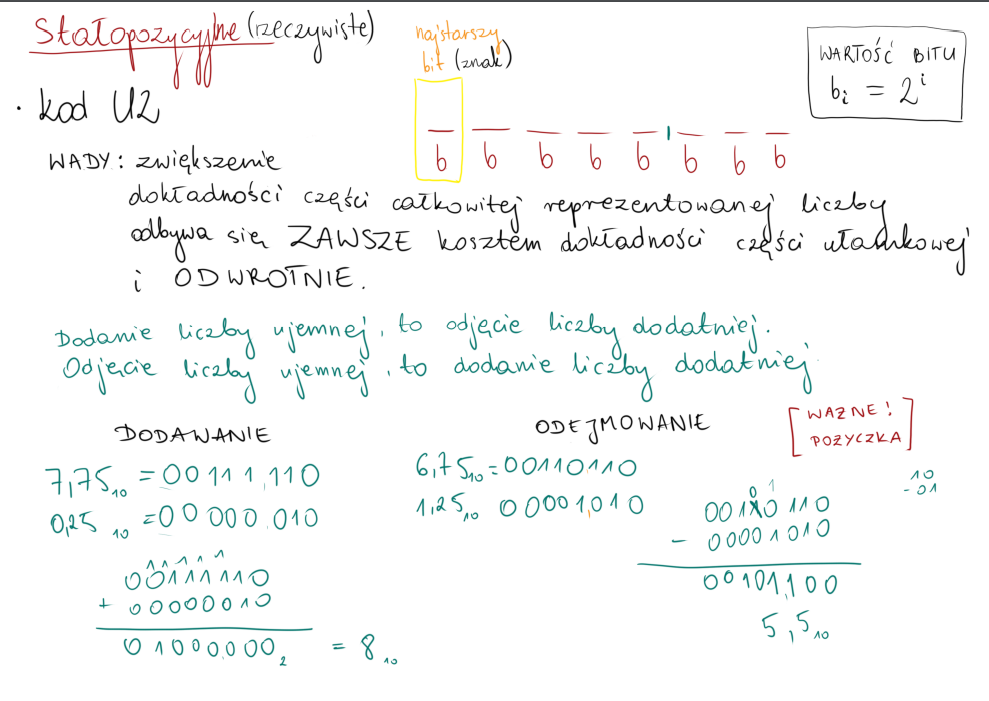 Stałopozycyjne (rzeczywiste)
najstarszy
bit (znak)
WARTOŚĆ BITU
bi = 2^i
• kod U2
b b b b b b b b
WADY: zwiększenie
dokładności części całkowitej reprezentowanej liczby
odbywa się ZAWSZE kosztem dokładności części ułamkowej
i ODWROTNIE.
Dodanie liczby ujemnej, to odjęcie liczby dodatniej.
Odjęcie liczby ujemnej, to dodanie liczby dodatniej
DODAWANIE
7,75₁₀ = 00111,110
0,25₁₀ = 00000,010
11111
00111110
+ 00000010
01000,000₂ = 8₁₀
ODEJMOWANIE
[WAŻNE!
POŻYCZKA]
6,75₁₀ = 00110110
1,25₁₀ 00001,010
10
- 01
0 1
00110110
- 00001010
00101,100
5,5₁₀